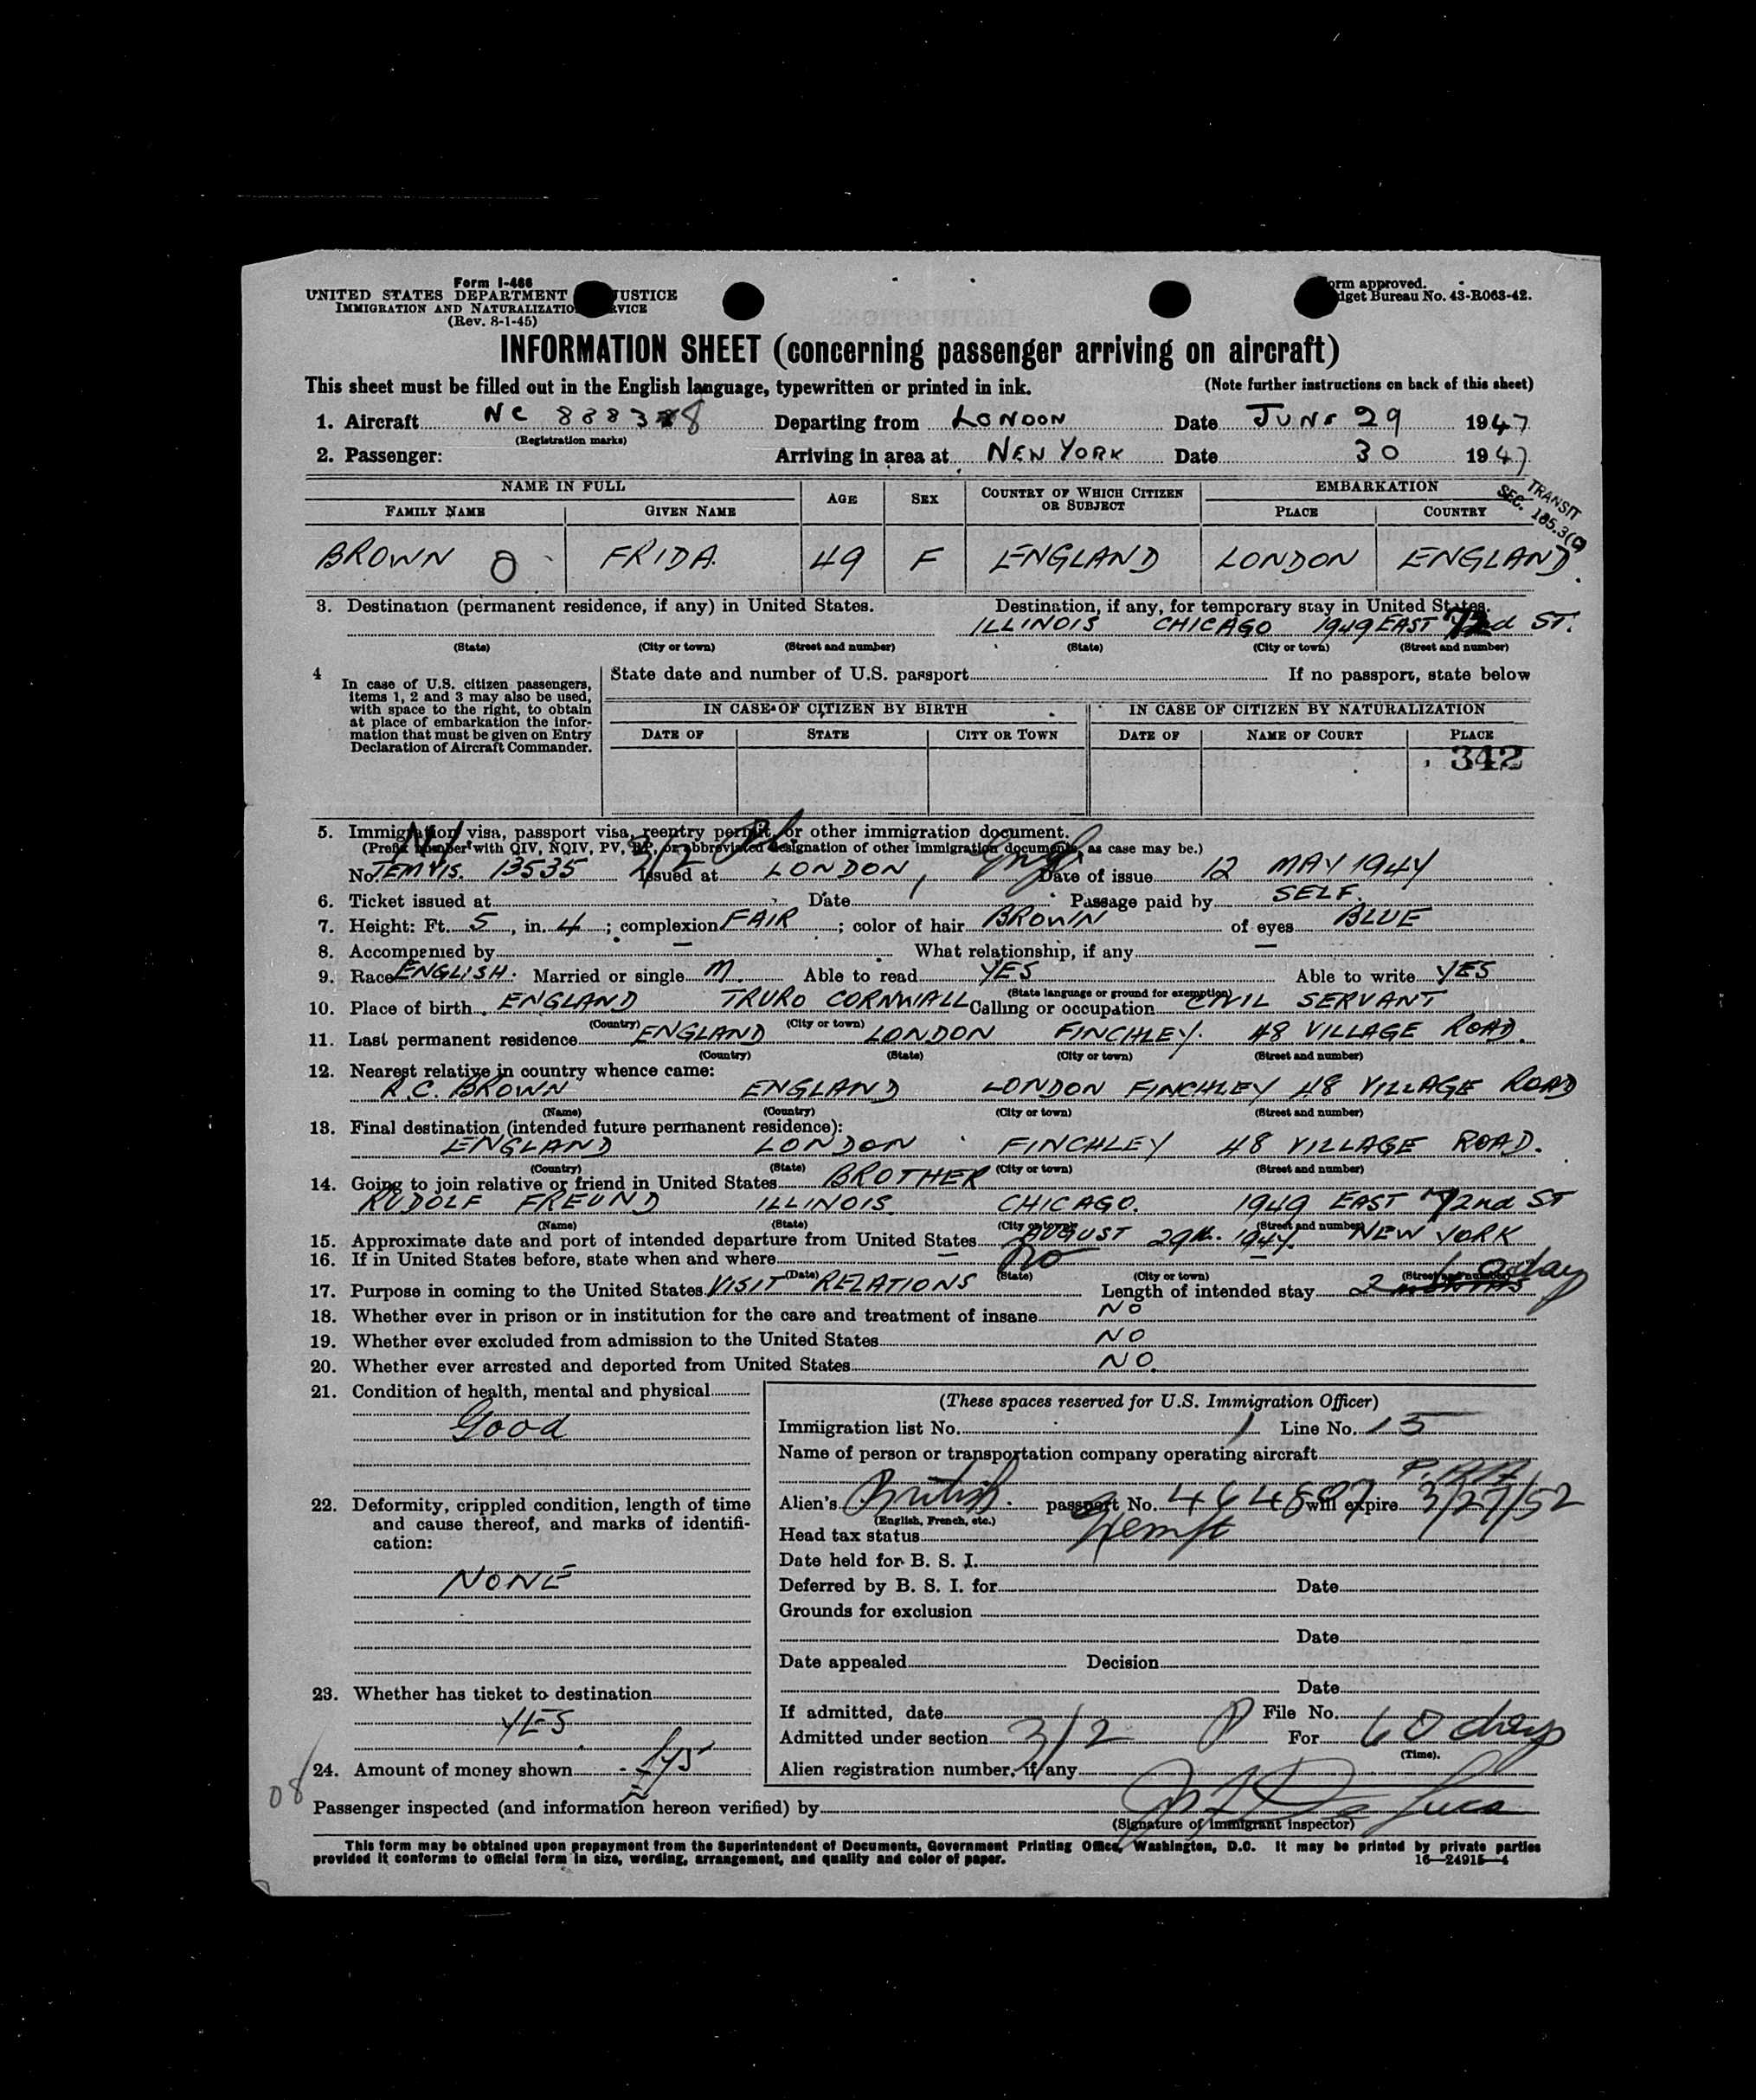 Form I-466
UNITED STATES DEPARTMENT JUSTICE
IMMIGRATION AND NATURALIZATIO RVICE
(Rev. 8-1-45)
orm approved.
dget Bureau No. 43-R063-42.
INFORMATION SHEET (concerning passenger arriving on aircraft)
This sheet must be filled out in the English language, typewritten or printed in ink. (Note further instructions on back of this sheet)
1. Aircraft NC 88838 Departing from LONDON Date JUNE 29 1947
(Registration marks)
2. Passenger: Arriving in area at NEW YORK Date 30 1947
TRANSIT
SEC. 185.3(C)
NAME IN FULL AGE SEX COUNTRY OF WHICH CITIZEN OR SUBJECT EMBARKATION
FAMILY NAME GIVEN NAME PLACE COUNTRY
BROWN O FRIDA 49 F ENGLAND LONDON ENGLAND.
3. Destination (permanent residence, if any) in United States. Destination, if any, for temporary stay in United States.
ILLINOIS CHICAGO 1949 EAST 72nd ST.
(State) (City or town) (Street and number) (State) (City or town) (Street and number)
4 In case of U.S. citizen passengers, items 1, 2 and 3 may also be used, with space to the right, to obtain at place of embarkation the information that must be given on Entry Declaration of Aircraft Commander.
State date and number of U.S. passport If no passport, state below
IN CASE OF CITIZEN BY BIRTH IN CASE OF CITIZEN BY NATURALIZATION
DATE OF STATE CITY OR TOWN DATE OF NAME OF COURT PLACE
342
5. Immigration visa, passport visa, reentry permit, or other immigration document.
(Prefix number with QIV, NQIV, PV, RP, or abbreviated designation of other immigration documents, as case may be.)
3/2
No. TEM VIS. 13535 Issued at LONDON, Eng. Date of issue 12 MAY 1947
6. Ticket issued at Date Passage paid by SELF.
7. Height: Ft. 5, in. 4; complexion FAIR; color of hair BROWN of eyes BLUE
8. Accompenied by — What relationship, if any —
9. Race ENGLISH. Married or single M Able to read YES Able to write YES
(State language or ground for exemption)
10. Place of birth ENGLAND TRURO CORNWALL Calling or occupation CIVIL SERVANT
(Country) (City or town)
11. Last permanent residence ENGLAND LONDON FINCHLEY. 48 VILLAGE ROAD.
(Country) (State) (City or town) (Street and number)
12. Nearest relative in country whence came:
R.C. BROWN ENGLAND LONDON FINCHLEY 48 VILLAGE ROAD
(Name) (Country) (City or town) (Street and number)
13. Final destination (intended future permanent residence):
ENGLAND LONDON FINCHLEY 48 VILLAGE ROAD.
(Country) (State) (City or town) (Street and number)
14. Going to join relative or friend in United States BROTHER
RUDOLF FREUND ILLINOIS. CHICAGO. 1949 EAST 72nd ST
(Name) (State) (City or town) (Street and number)
15. Approximate date and port of intended departure from United States AUGUST 29th. 1947. NEW YORK
16. If in United States before, state when and where — No —
(Date) (State) (City or town) (Street and number)
17. Purpose in coming to the United States VISIT RELATIONS Length of intended stay 2 MONTHS 60 day
18. Whether ever in prison or in institution for the care and treatment of insane NO
19. Whether ever excluded from admission to the United States NO
20. Whether ever arrested and deported from United States NO.
21. Condition of health, mental and physical
Good
22. Deformity, crippled condition, length of time and cause thereof, and marks of identification:
NONE
23. Whether has ticket to destination
YES
24. Amount of money shown
08
(These spaces reserved for U.S. Immigration Officer)
Immigration list No. 1 Line No. 15
Name of person or transportation company operating aircraft
Alien's British. passport No. 464587 will expire 3/27/52
(English, French, etc.)
Head tax status Exempt
Date held for B. S. I.
Deferred by B. S. I. for Date
Grounds for exclusion
Date
Date appealed Decision
Date
If admitted, date File No.
Admitted under section 3/2 For 60 days
(Time).
Alien registration number, if any
Passenger inspected (and information hereon verified) by
(Signature of immigrant inspector)
This form may be obtained upon prepayment from the Superintendent of Documents, Government Printing Office, Washington, D.C. It may be printed by private parties
provided it conforms to official form in size, wording, arrangement, and quality and color of paper. 16—24915-4